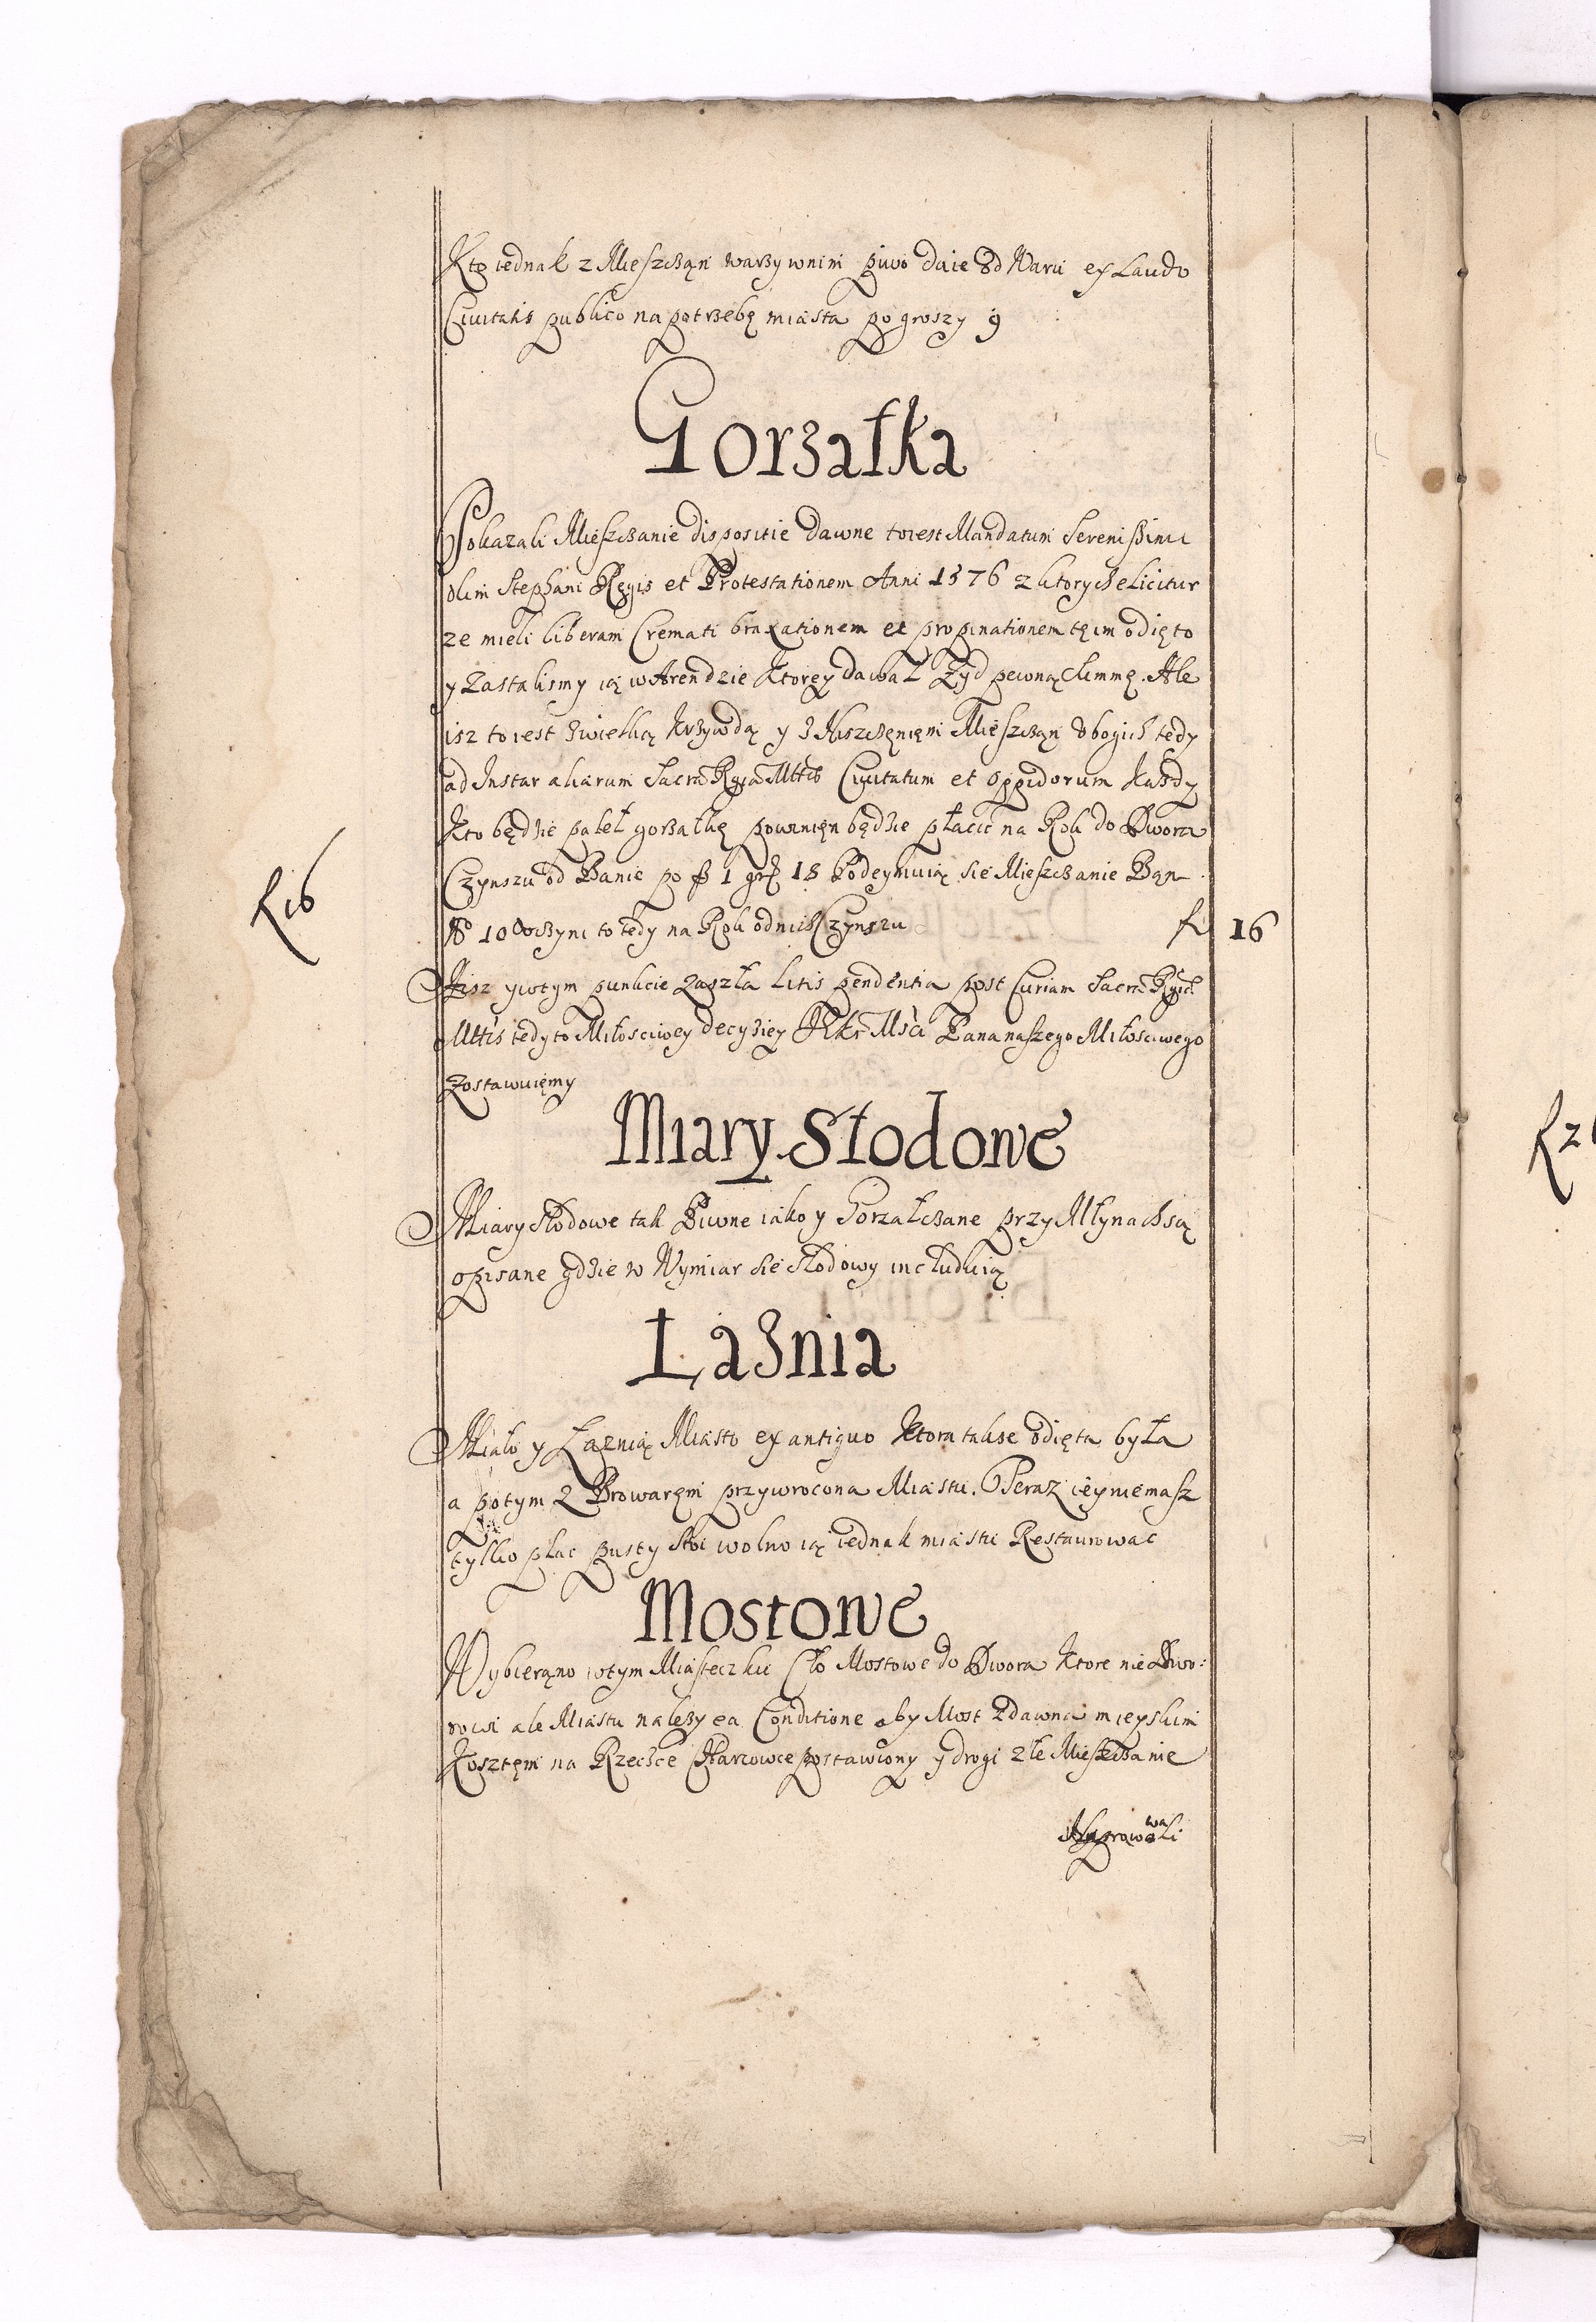 Kto iednak z Mieszcząn warzywnim piwo daie od Waru ex Laudo
Civitatis publico na potrzebę miasta po groszy 9
Gorzałka
Pokazali Mieszczanie dispositie dawne to iest Mandatum Serenissimi
olim Stephani Regis et Protestationem Anni 1576 z ktorych elicitur
ze mieli liberam Cremati braxationem et propinationem tę im odięto
y Zastalismy ią w Arendzie Ktorey dawał Żyd pewną Summę. Ale
isz to iest z wielką Krzywdą y z Niszczęnięm Mieszcząn Vbogich tedy
ad Instar aliarum Sacræ Rgæ Mttis Civitatum et Oppidorum Każdy
Kto będzie palił gorzałkę powinięn będzie płacic na Rok do Dwora
Czynszu od Banie po fl 1 gr 18 Podeymuią sie Mieszczanie Bąn
No 10 Vczyni to tedy na Rok od nich Czynszu fl 16
R 16
Aisz y w tym punkcie zaszła Litis pendentia post Curiam Sacræ Rgiæ
Mttis tedy to Miłosciwey decyziey JKr Msci Pana naszego Miłosciwego
zostawuięmy
Miary Słodowe
Miary Słodowe tak Piwne iako y Gorzałczane przy Młynach są
opisane gdzie w Wymiar sie Słodowy includuią
Łaznia
Miało y Łaznią Miasto ex antiquo Ktora takze odięta była
a potym z Browaręm przywrocona Miastu. Teraz iey niemasz
tylko plac pusty stoi wolno ią iednak miastu Restaurowac
Mostowe
Wybierąno w tym Miasteczku Cło Mostowe do Dwora Ktore nie Dwo:
rowi ale Miastu nalezy ea Conditione aby Most z dawna mieyskim
Kosztęm na Rzeczce postawiony y drogi złe Mieszczanie
Naprawowali